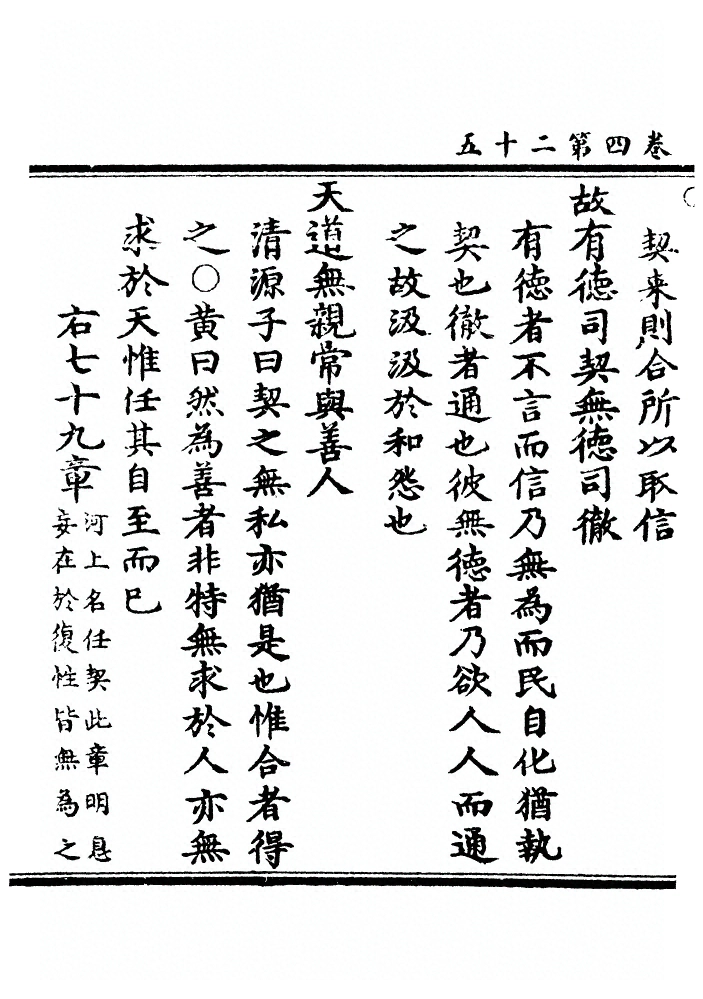 卷四第二十五
契来則合所以取信
故有德司契無德司徹
有德者不言而信乃無為而民自化猶執
契也徹者通也彼無德者乃欲人人而通
之故汲汲於和怨也
天道無親常與善人
清源子曰契之無私亦猶是也惟合者得
之○黄曰然為善者非特無求於人亦無
求於天惟任其自至而已
右七十九章
河上名任契此章明息
妄在於復性皆無為之